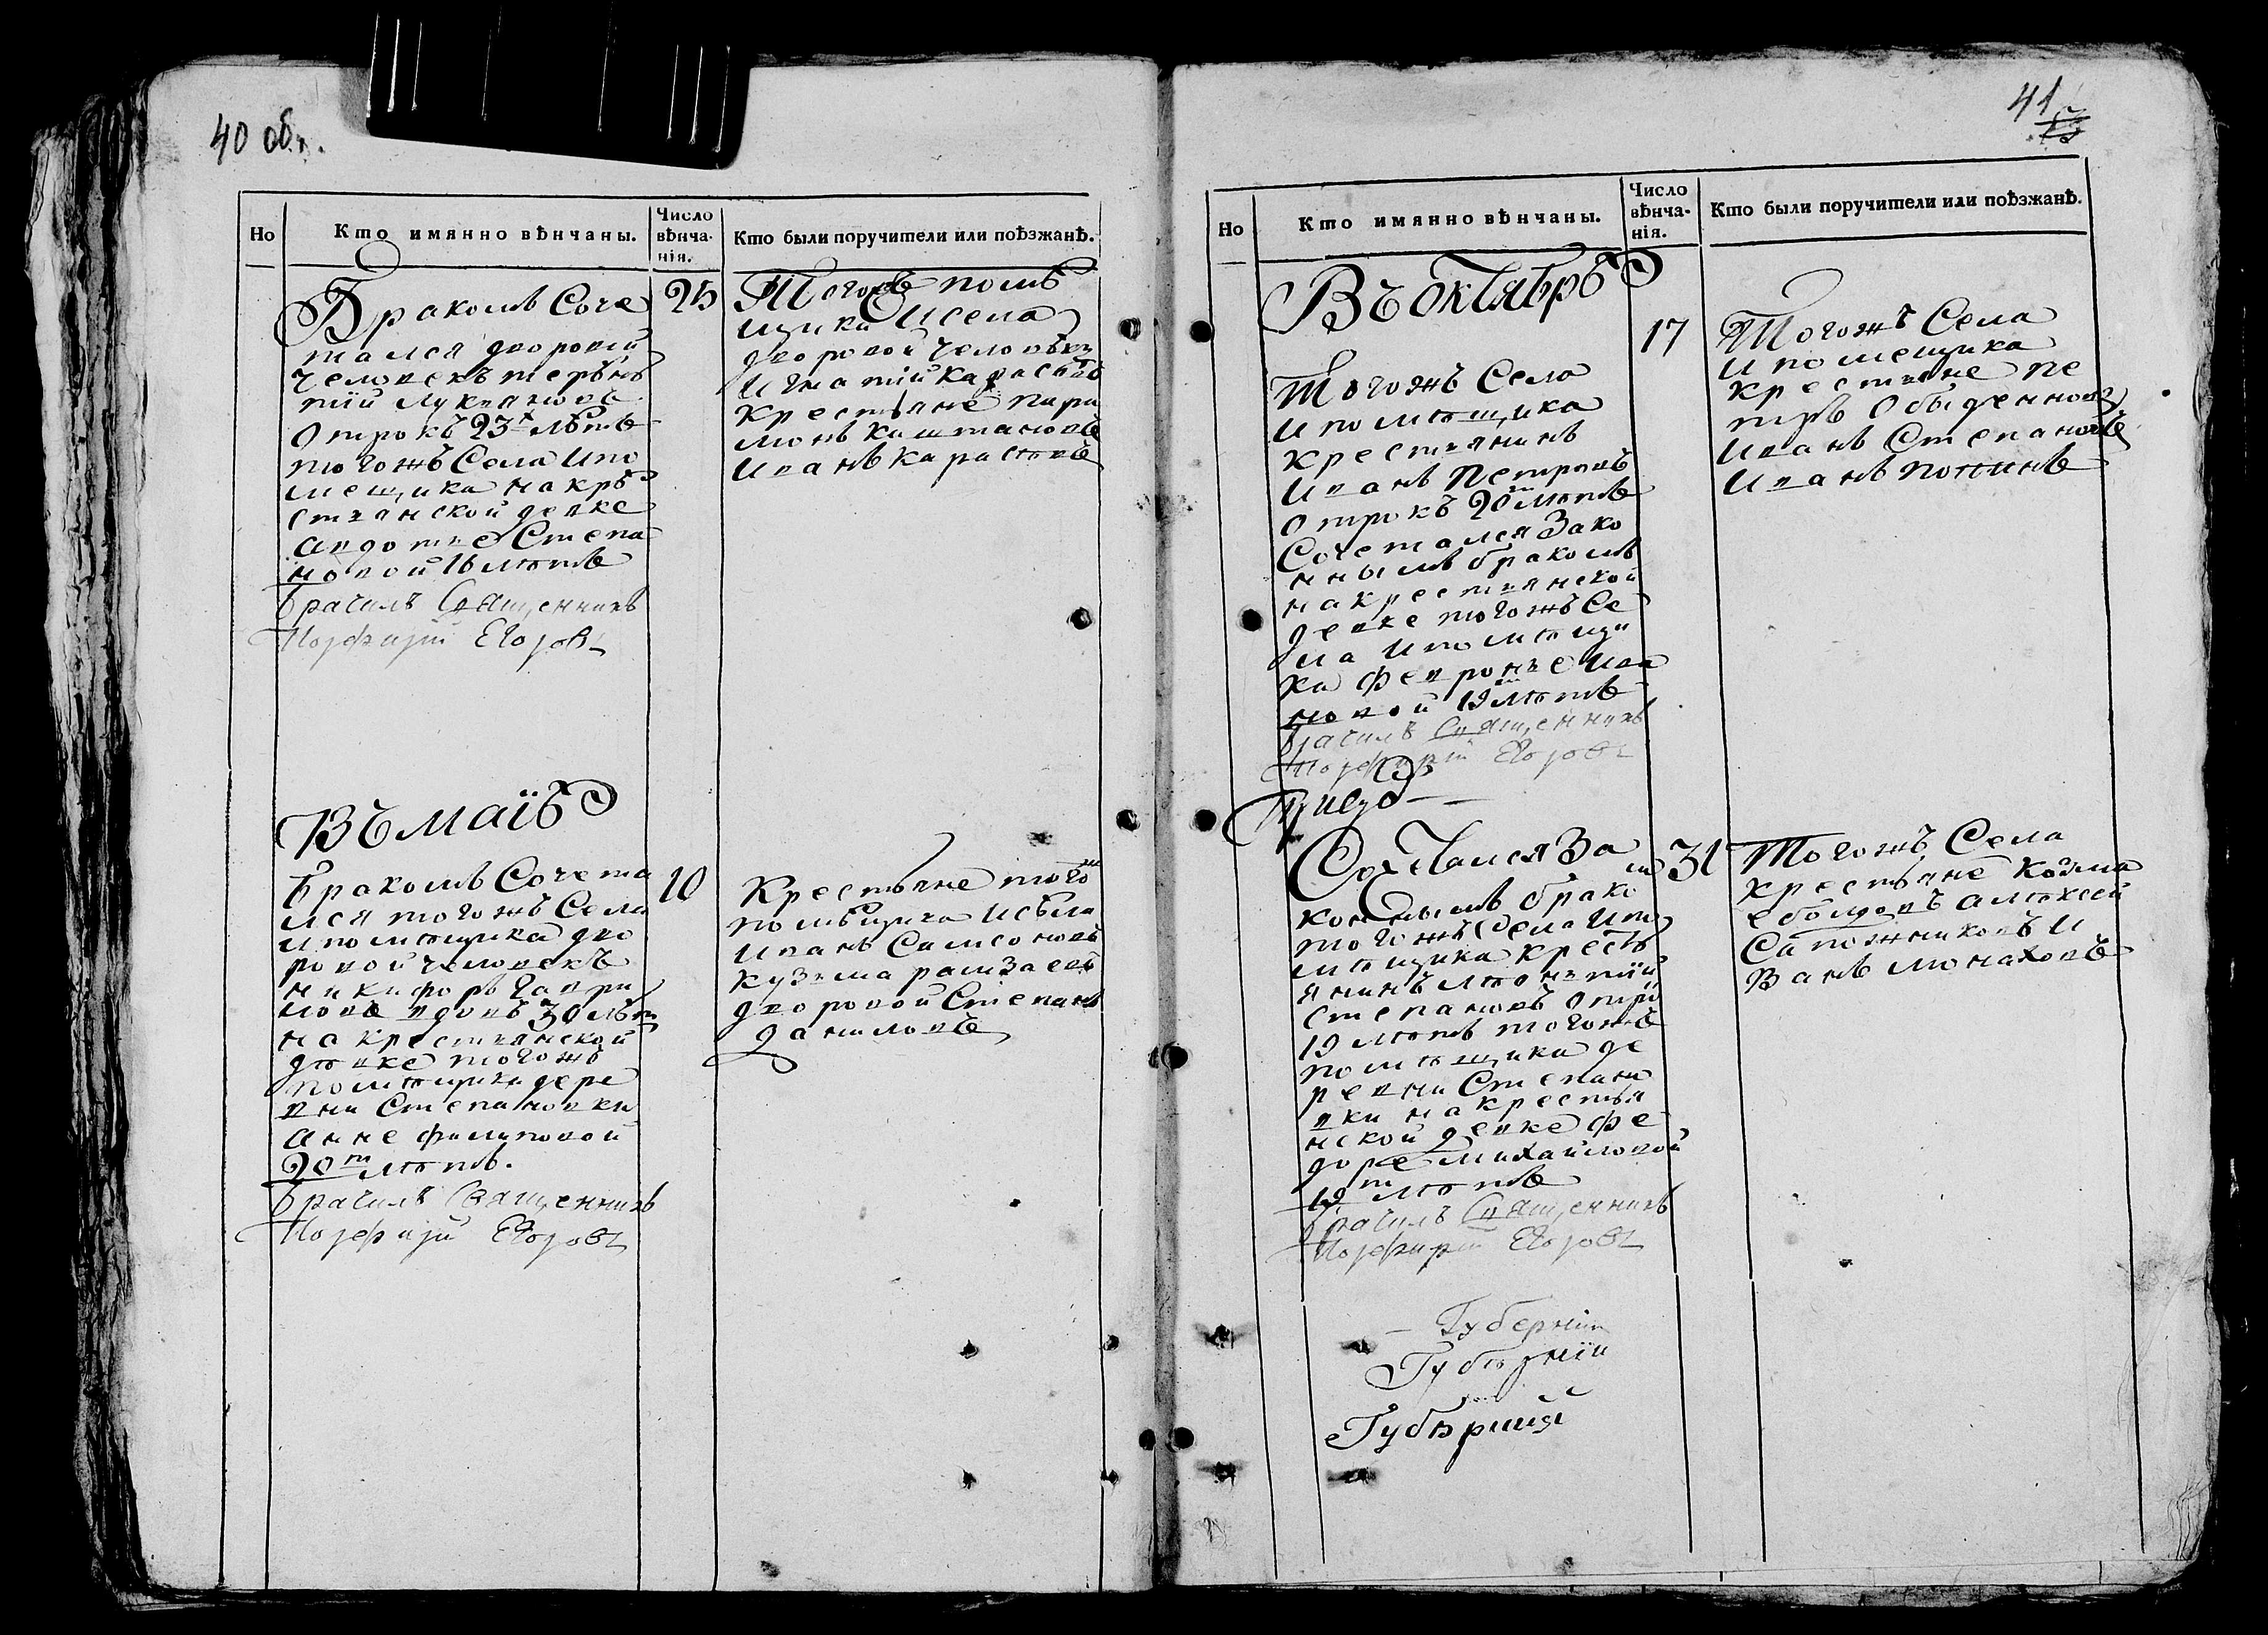 40 об.
Но
Кто имянно вѣнчаны.
Число
вѣнча-
нія.
Кто были поручители или поѣзжанѣ.
Бракомъ Соче
тался дворовой
человекъ терѣнь
тїй Лукяновъ
отрокъ 23х лѣтъ
тогожъ Села ипо
мещика накрѣ
стянской девке
авдотье Степа
новой 16 летъ
Врачилъ Священникъ
Порфирїй Егоровъ
25
Тогожъ помѣ
щика Исела
дворовой человекъ
Игнатїй
Крестьяне пара
монъ Каштановъ
Иванъ Карастовъ
Въ маїѣ
Бракомъ Сочета
лся тогожъ Села
и помѣщика дво
ровой человекъ
никифоръ Гаври
ловъ вдовъ 30 лѣт
на крестянской
дѣвке тогожъ
помѣщика дере
вни Степановки
анне филиповой
20ти лѣтъ.
Врачилъ Священникъ
Порфирїй Егоровъ
10
Крестьяне того
помѣщика Исѣла
Иванъ Самсоновъ
кузьма рамзаевъ
дворовой Степанъ
даниловъ
41
Но
Кто имянно вѣнчаны.
Число
вѣнча-
нія.
Кто были поручители или поѣзжанѣ.
Въ октябрѣ
Тогожъ Села
ипомѣщика
крестянинъ
Иванъ Петровъ
отрокъ 20ти лѣтъ
Сочетался Зако
ннымъ бракомъ
на крестянской
девке тогожъ Се
ла ипомѣщи
ка февронье Ива
новой 19ти лѣтъ
Врачилъ Священникъ
Порфирїй Егоровъ
17
Тогожъ Села
и помещика
крестьяне пе
тръ Обыденновъ
Иванъ Степановъ
Иванъ
Сочетался За
коннымъ брако
тогожъ Села ипо
мѣщика кресть
янинъ лѣонтїй
степановъ отро
19 лѣтъ тогожъ
помѣщика де
ревни Степано
вки на крестья
нской девке фе
доре михайловой
19ти лѣтъ
Врачилъ Священникъ
Порфирїй Егоровъ
31
Тогожъ Села
крестьяне Козма
алѣксей
Сапожниковъ И
Ванъ монаховъ
Губернїи
Губѣрнїи